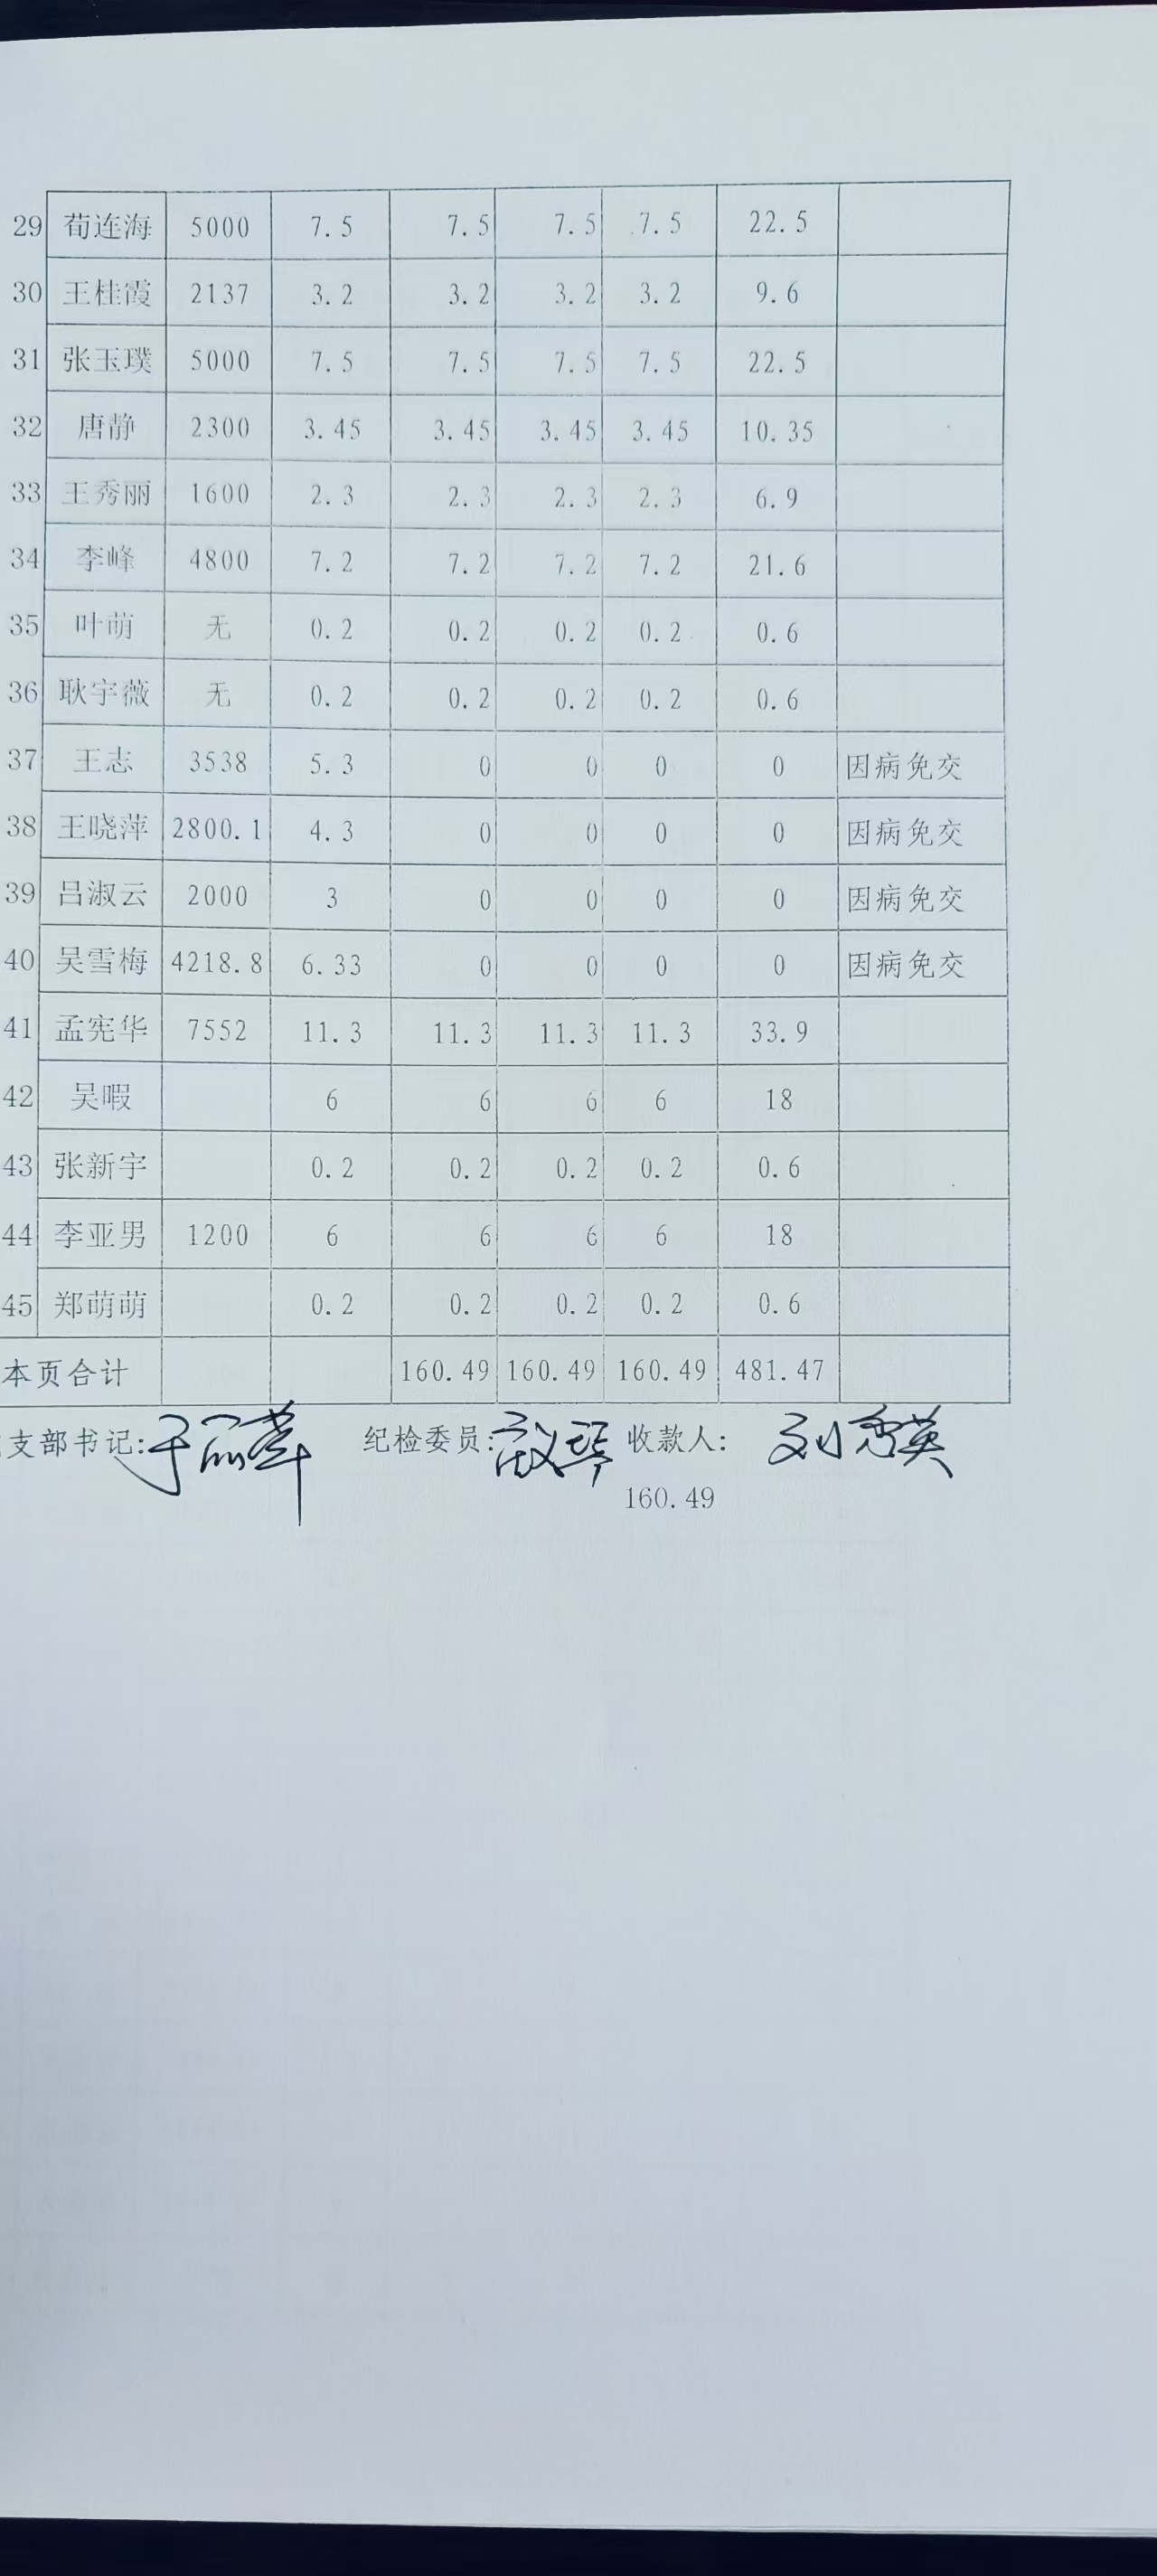 29 荀连海 5000 7.5 7.5 7.5 7.5 22.5
30 王桂霞 2137 3.2 3.2 3.2 3.2 9.6
31 张玉璞 5000 7.5 7.5 7.5 7.5 22.5
32 唐静 2300 3.45 3.45 3.45 3.45 10.35
33 王秀丽 1600 2.3 2.3 2.3 2.3 6.9
34 李峰 4800 7.2 7.2 7.2 7.2 21.6
35 叶萌 无 0.2 0.2 0.2 0.2 0.6
36 耿宇薇 无 0.2 0.2 0.2 0.2 0.6
37 王志 3538 5.3 0 0 0 0 因病免交
38 王晓萍 2800.1 4.3 0 0 0 0 因病免交
39 吕淑云 2000 3 0 0 0 0 因病免交
40 吴雪梅 4218.8 6.33 0 0 0 0 因病免交
41 孟宪华 7552 11.3 11.3 11.3 11.3 33.9
42 吴暇 6 6 6 6 18
43 张新宇 0.2 0.2 0.2 0.2 0.6
44 李亚男 1200 6 6 6 6 18
45 郑萌萌 0.2 0.2 0.2 0.2 0.6
本页合计 160.49 160.49 160.49 481.47
支部书记: 纪检委员: 收款人: 刘秀英
160.49